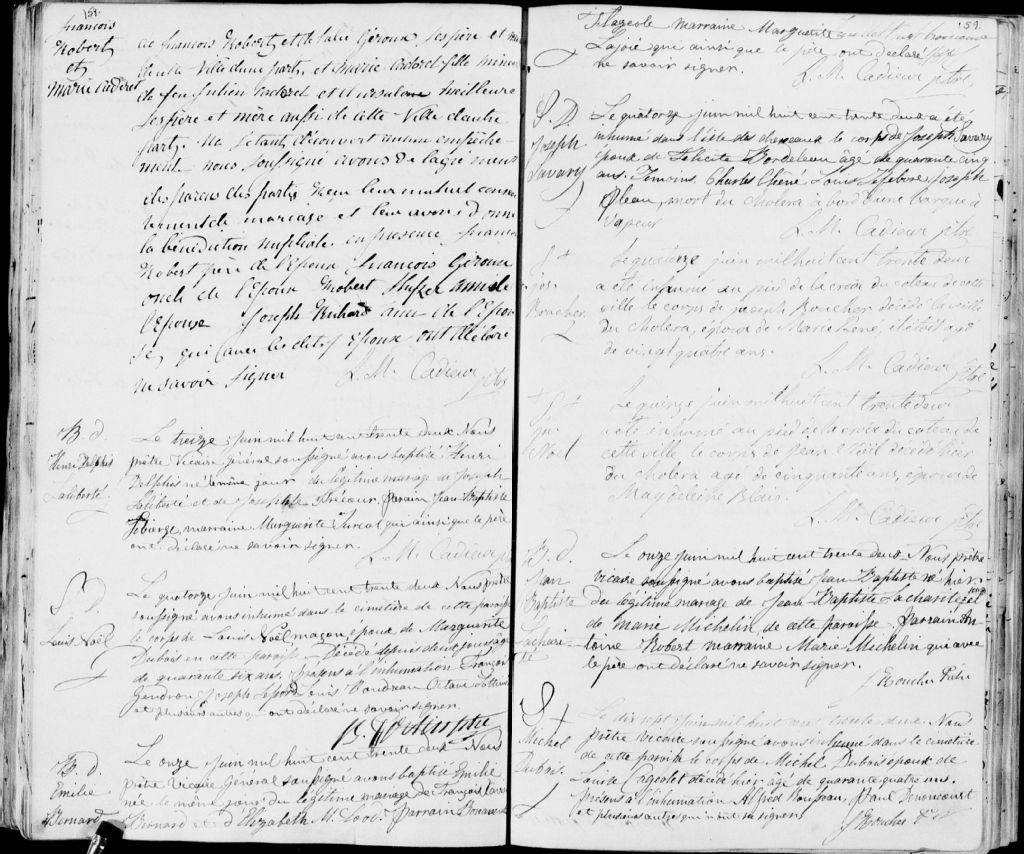 158.
François
Robert
et
Marie Caderet
de François Robert, et de Julie Giroux, ses père et
de cette Ville d'une part, et Marie Caderet fille
de feu Julien Caderet et d'Ursule meilleure
ses père et mère aussi de cette Ville d'autre
part. Ne s'étant découvert aucun empêche-
ment nous soussigné avons de l'agrément
des parens des partis reçu leur mutuel consen
de mariage et leur avons donné
la bénédiction nuptiale en présence
Robert père de l'Epoux François Giroux
oncle de l'Epoux Robert ami de
l'épouse Joseph ami de l'Epou
se, qui (avec les dits) époux ont déclaré
ne savoir signer L. M. Cadieux ptre
B. d.
Henri Delphis
Laliberté
Le treize, juin mil huit cent trente deux Nous
prêtre Vicaire Général soussigné avons baptisé Henri
Delphis né le même jour du légitime mariage de Joseph
Laliberté et de Josephte Précour Parain Jean Baptiste
marraine Marguerite Turcot qui ainsi que le père
ont déclaré ne savoir signer. L. M. Cadieux
S. D.
Louis Noël
Le quatorze juin mil huit cent trente deux Nous prêtre
soussigné avons inhumé dans le cimetière de cette paroisse
le corps de Louis Noël maçon, époux de Marguerite
Dubois en cette paroisse Décédé depuis deux jours âgé
de quarante six ans. Présens à l'inhumation François
Gendron Joseph Boudreau Octave
et plusieurs autres qui ont déclaré ne savoir signer.
B. d.
Emilie
Bernard
Le onze juin mil huit cent trente deux Nous
prêtre Vicaire Général soussigné avons baptisé Emilie
née le même jour du légitime mariage de François
Bernard et d'Elizabeth M. Parrain
159.
marraine Marguerite
Lajoie qui ainsi que le père ont déclaré
ne savoir signer. L. M. Cadieux ptre.
S. D.
Joseph
Savary
Le quatorze juin mil huit cent trente deux a été
inhumé dans l'île des le corps de Joseph Savary
époux de Félicité Bordeleau âgé de quarante cinq
ans. Témoins Charles Chêné Louis Lefebvre, Joseph
Pleau, mort du Choléra à bord d'une barque à
vapeur L. M. Cadieux ptre
S. +
Jos.
Boucher
Le quatorze juin mil huit cent trente deux
a été inhumé au pied de la croix du coteau de cette
ville le corps de Joseph Boucher décédé la veille
du choléra, époux de Marie Chêné, il était agé
de vingt quatre ans.
L. M. Cadieux ptre
+ S. +
Jn.
Noël
Le quinze juin mil huit cent trente deux
a été inhumé au pied de la croix du coteau de
cette ville le corps de Jean Noël décédé hier
du choléra agé de cinquante ans, époux de
Magdeleine Blais.
L. M. Cadieux ptre
B. d.
Jean
Baptiste
Lachari-
té
Le onze juin mil huit cent trente deux Nous prêtre
vicaire soussigné avons baptisé Jean Baptiste né hier
du légitime mariage de Jean-Baptiste Lacharité et
de Marie Michelin, de cette paroisse. Parrain An-
toine Robert marraine Marie Michelin qui avec
le père ont déclaré ne savoir signer.
J. Boucher Ptre
S +
Michel
Dubois
Le dix sept juin mil huit cent trente deux Nous
Prêtre vicaire soussigné avons inhumé dans le cimetière
de cette paroisse le corps de Michel Dubois époux de
Louise Cageolet décédé hier âgé de quarante quatre ans.
Présens à l'inhumation Alfred Rousseau, Paul Denoncourt
et plusieurs autres qui n'ont su signer.
J. Boucher